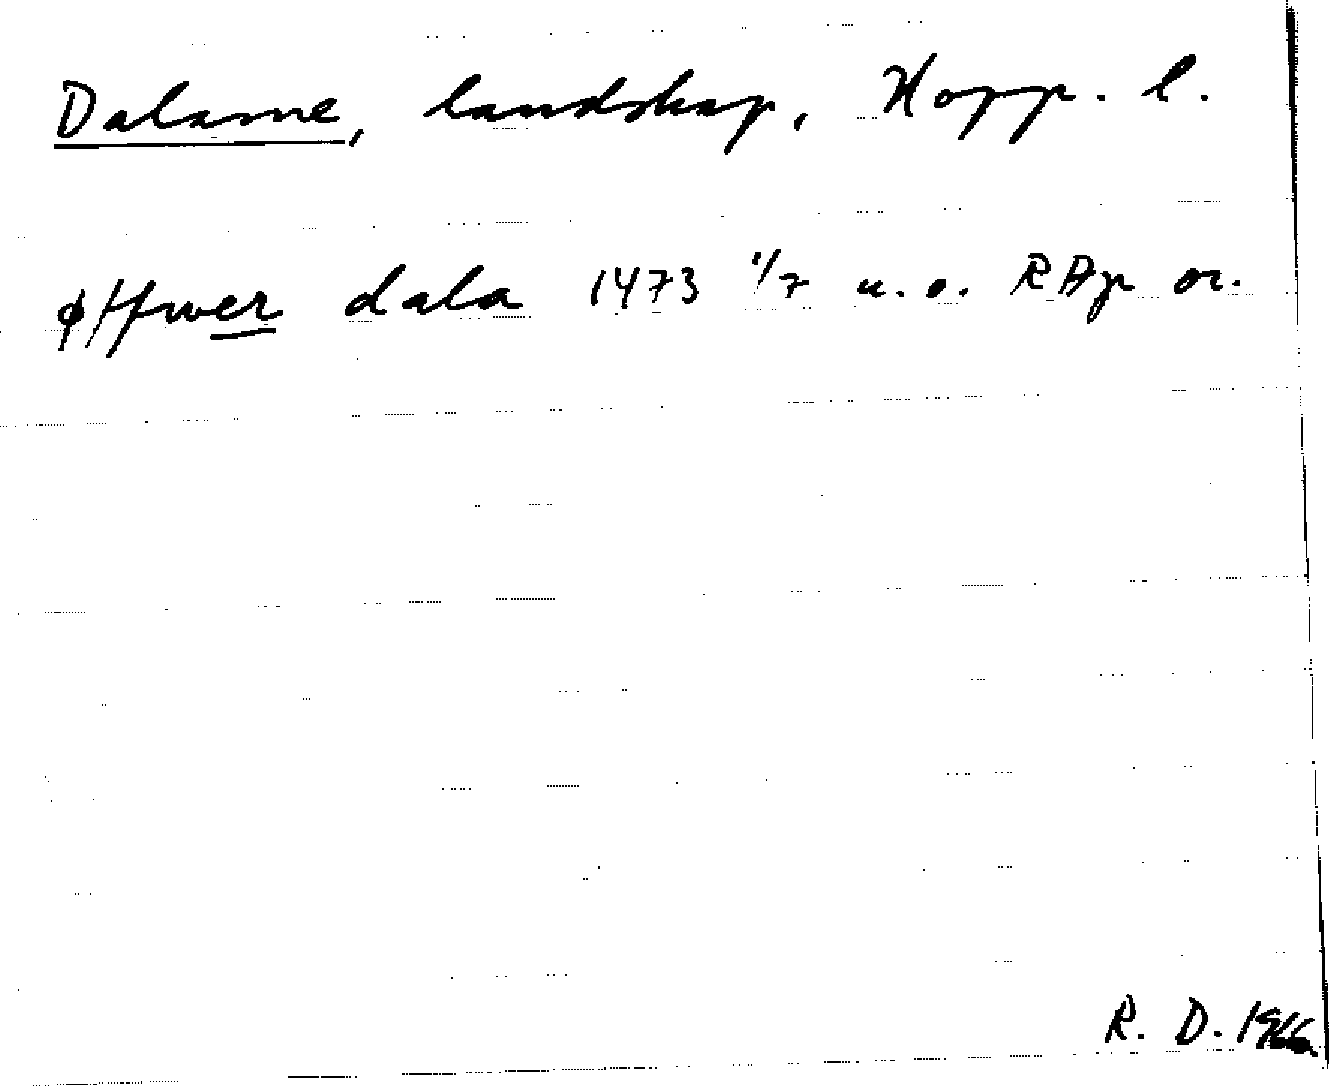 Dalarne, landskap, Kopp. l.
ø/ffwer dala 1473 1/7 u.o. RAp or.
R. D. 1966